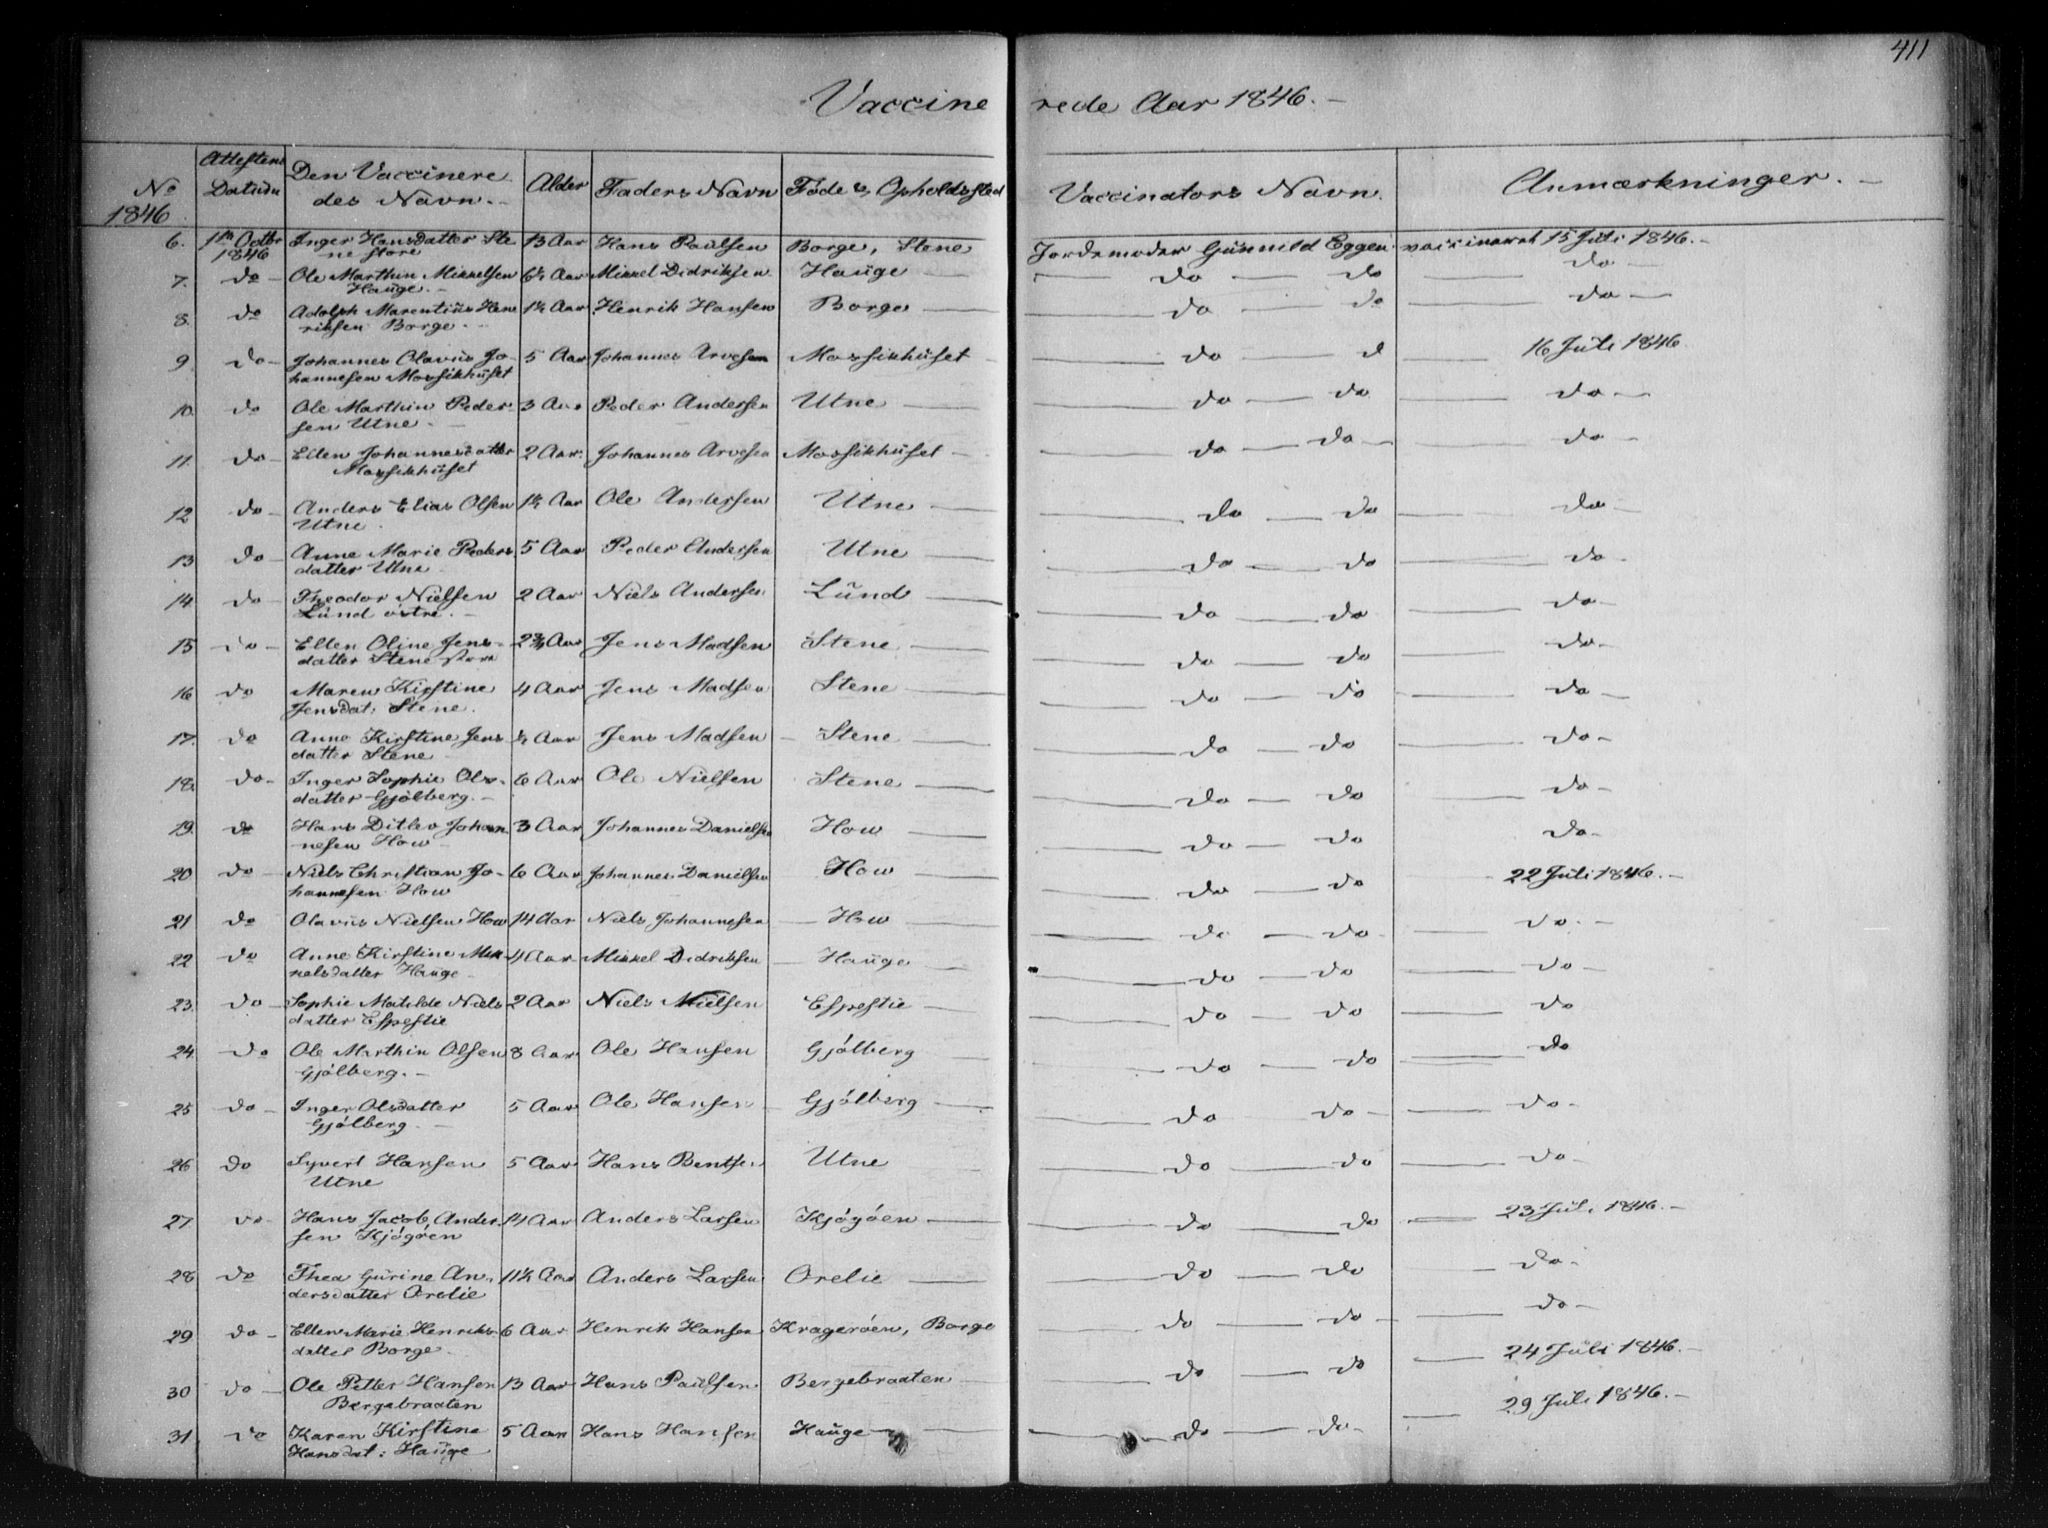 411
Vaccine rede Aar 1846.-
No 1846 Attestens Datum Den Vaccinere des Navn.- Alder Faders Navn Føde & Opholdssted Vaccinators Navn. Anmærkninger.-
6. 1ste Octbr 1846 Inger Hansdatter Ste 13 Aar Hans Paulsen Borge, Stene Jordemoder Gunnild Eggen vaccineret 15 Juli 1846.-
ne store
7. do Ole Marthin Mikkelsen 6½ Aar Mikkel Didriksen Hauge do do do
Hauge.-
8. do Adolph Marentius Hen 1½ Aar Henrik Hansen Borge do do do
riksen Borge.-
9 do Johannes Olavus Jo- 5 Aar Johannes Arvesen Mossikhuset do d 16 Juli 1846
hannesen Mossikhuset
10. do Ole Marthin Peder- 3 Aar Peder Andersen Utne do do do
sen Utne
11. do Ellen Johannesdatter 2 Aar Johannes Arvesen Mossikhuset do do do
Mossikhuset
12 do Anders Elias Olsen 1½ Aar Ole Andersen Utne do do do
Utne.
13 do Anne Marie Peders 5 Aar Peder Andersen Utne do do do
datter Utne
14 do Theodor Nielsen 2 Aar Niels Andersen Lund do do do
Lund østre.-
15 do Ellen Oline Jens- 2¾ Aar Jens Madsen Stene do do do
datter Stene store
16 do Maren Kirstine 4 Aar Jens Madsen Stene do do do
Jensdat: Stene.
17. do Anne Kirstine Jens ½ Aar Jens Madsen Stene do do do
datter Stene
18. do Inger Sophie Ols- 6 Aar Ole Nielsen Stene do do do
datter Gjølberg.-
19. do Hans Ditlev Johan 3 Aar Johannes Danielsen How do do do
nesen How
20 do Niels Christian Jo- 6 Aar Johannes Danielsen How do do 22 Juli 1846.-
hannesen How
21 do Olavus Nielsen How 14 Aar Niels Johannesen How do do do
22 do Anne Kirstine Mik 4 Aar Mikkel Didriksen Hauge do do do
kelsdatter Hauge
23. do Sophie Matilde Niels 2 Aar Niels Nielsen Espestie do do do
datter Espestie
24. do Ole Marthin Olsen 8 Aar Ole Hansen Gjølberg do do do
Gjølberg.-
25 do Inger Olsdatter 5 Aar Ole Hansen Gjølberg do do do
Gjølberg.
26 do Syvert Hansen 5 Aar Hans Bentsen Utne do do do
Utne
27 do Hans Jacob Ander 14 Aar Anders Larsen Kjøgøen do do 23 Juli 1846.-
sen Kjøgøen
28 do Thea Gurine An- 11½ Aar Anders Larsen Orelie do do do
dersdatter Orelie
29 do Ellen Marie Henriks 6 Aar Henrik Hansen Kragerøen, Borge do do do
datter Borge
30 do Ole Petter Hansen 13 Aar Hans Paulsen Bergebraaten do do 24 Juli 1846.-
Bergebraaten
31 do Karen Kirstine 5 Aar Hans Hansen Hauge do do 29 Juli 1846.-
Hansdat: Hauge